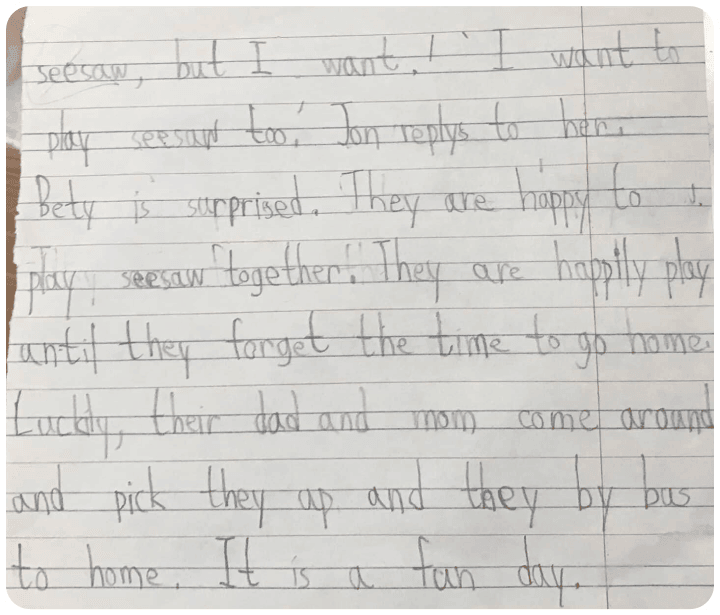 seesaw, but I want!" "I want to
play seesaw too." Jon replys to her.
Bety is surprised. They are happy to
play seesaw together. They are happily play
until they forget the time to go home.
Luckly, their dad and mom come around
and pick they up and they by bus
to home. It is a fun day.